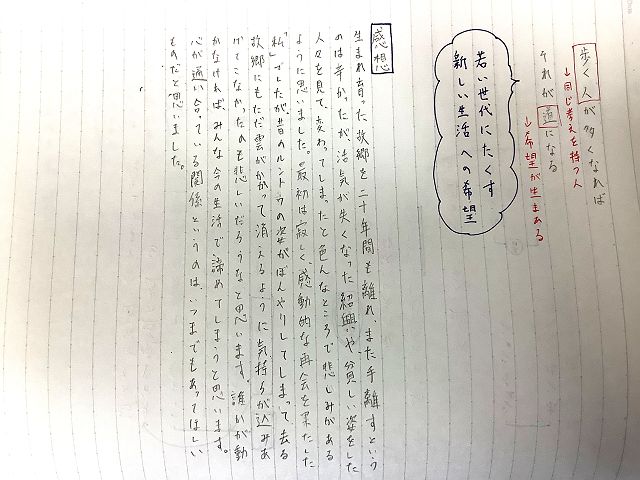 歩く人が多くなれば
↓同じ考えを持つ人
それが道になる
↓希望が生まれる
若い世代にたくす
新しい生活への希望
感想
生まれ育った故郷を二十年間も離れ、また手離すという
のは辛かったが活気が失くなった紹興や、貧しい姿をした
人々を見て、変わってしまったと色んなところで悲しみがある
ように思いました。最初は寂しく、感動的な再会を果たした
「私」でしたが、昔のルントウの姿がぼんやりしてしまって、去る
故郷にもただ雲がかかって消えるように気持ちが込みあ
げてこなかったのも悲しいだろうなと思います。誰かが動
かなければ、みんな今の生活で諦めてしまうと思います。
心が通い合っている関係というのは、いつまでもあってほしい
ものだと思いました。